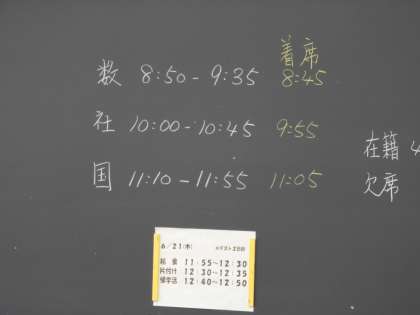 着席
数 8:50-9:35 8:45
社 10:00-10:45 9:55
在籍 4
国 11:10-11:55 11:05
欠席
6/21(木)
給食 11:55~12:30
片付け 12:30~12:35
帰学活 12:40~12:50